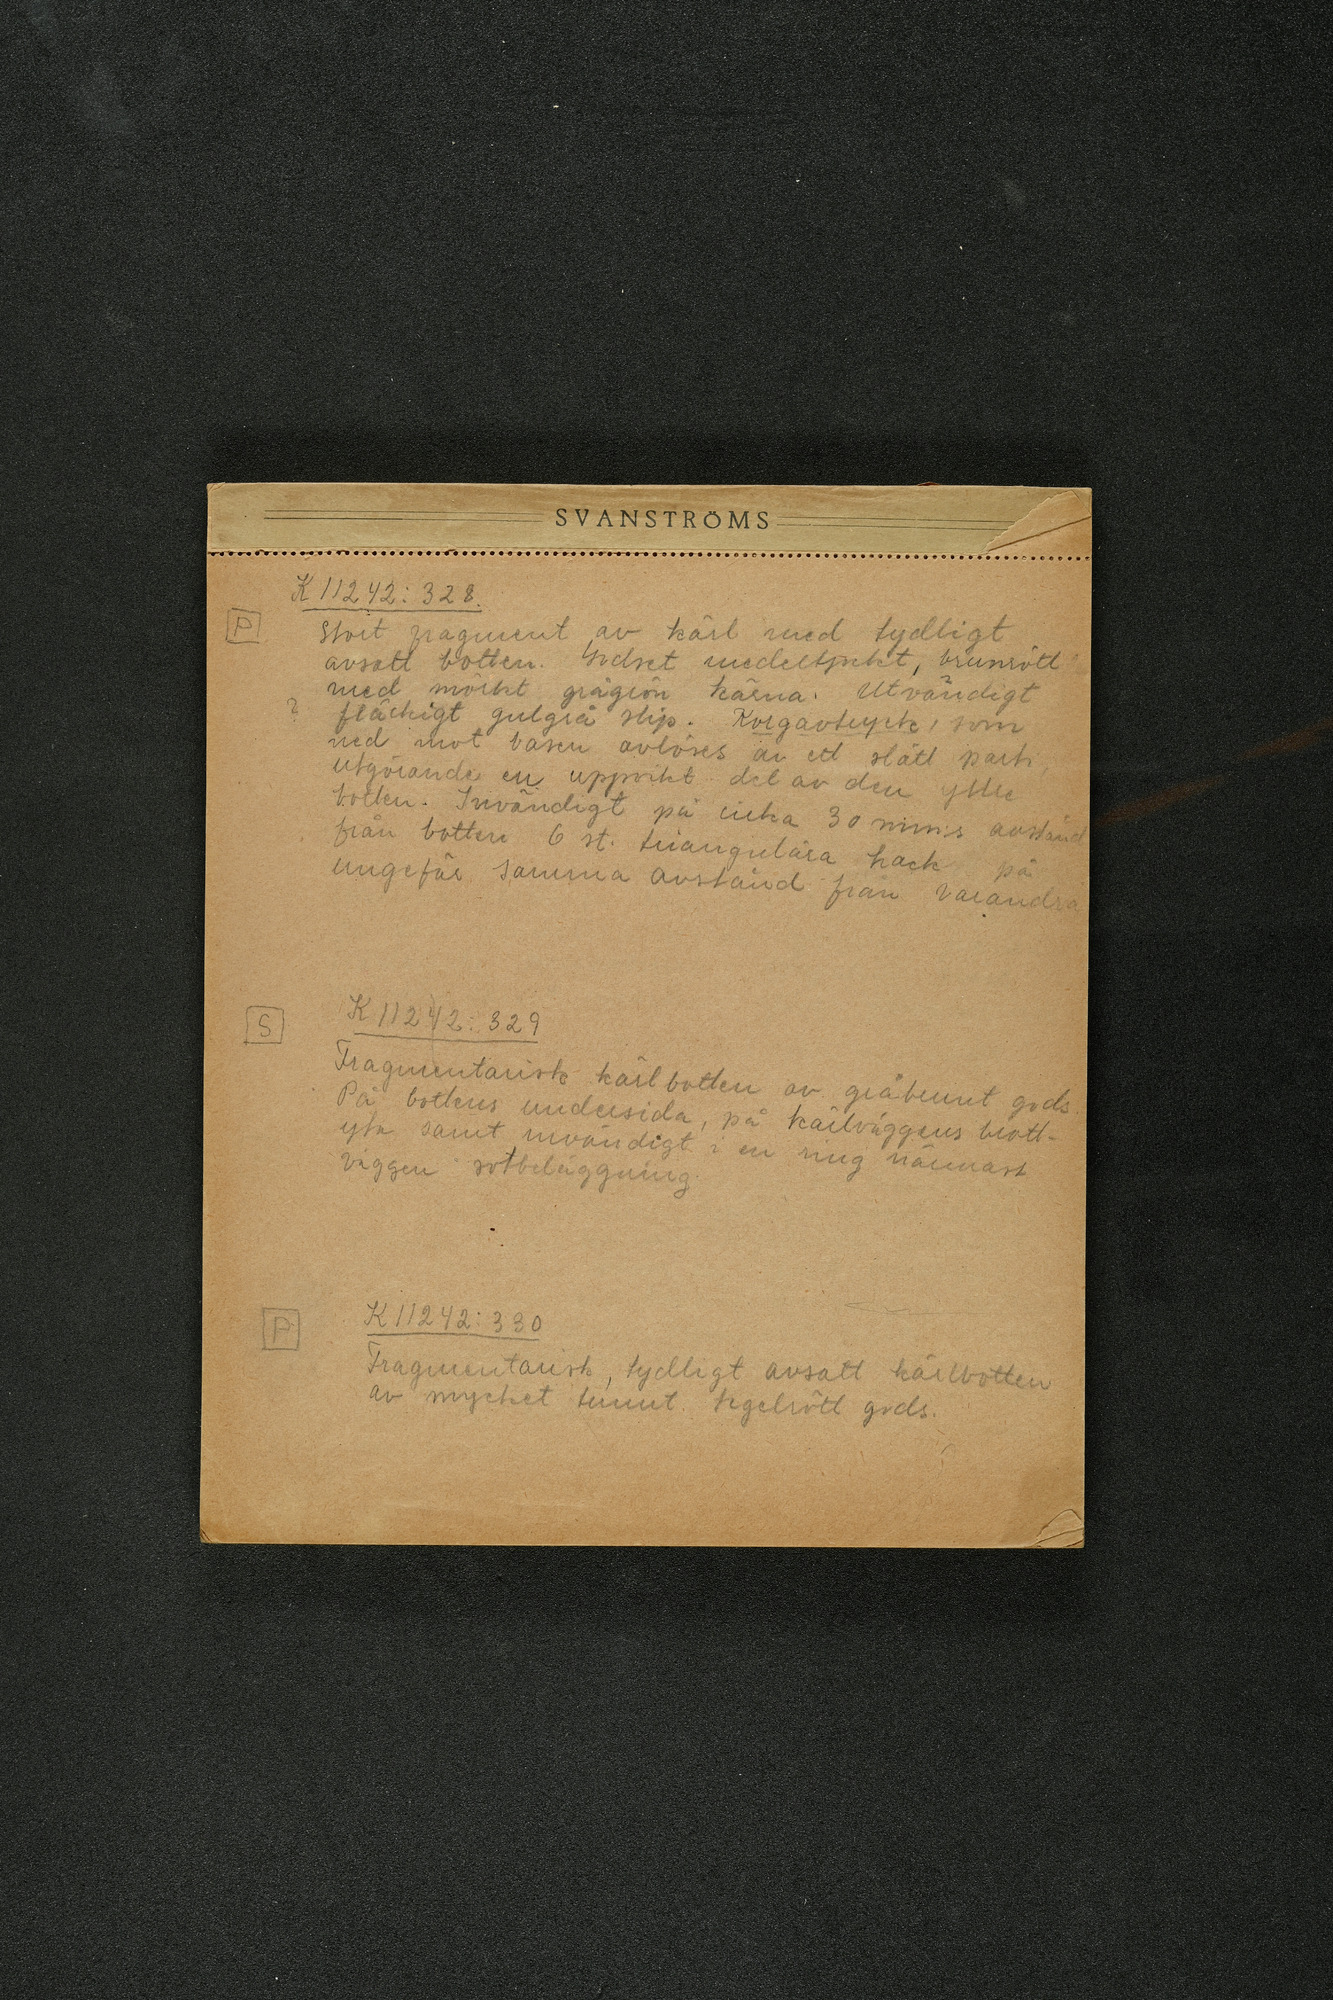 SVANSTRÖMS
K 11242:328.
P
Stort fragment av kärl med tydligt
avsatt botten. Godset medeltjockt, brunrött
med mörkt grågrön kärna. Utvändigt
? fläckigt gulgrå slip. Korgavtryck, som
ned mot basen avlöses av ett slätt parti,
utgörande en uppvikt del av den yttre
botten. Invändigt på cirka 30 mm:s avstånd
från botten 6 st. triangulära hack på
ungefär samma avstånd från varandra
S
K 11242:329
Fragmentarisk kärlbotten av gråbrunt gods.
På bottens undersida, på kärlväggens brott-
yta samt invändigt i en ring närmast
väggen sotbeläggning
P
K 11242:330
Fragmentarisk, tydligt avsatt kärlbotten
av mycket tunnt tegelrött gods.